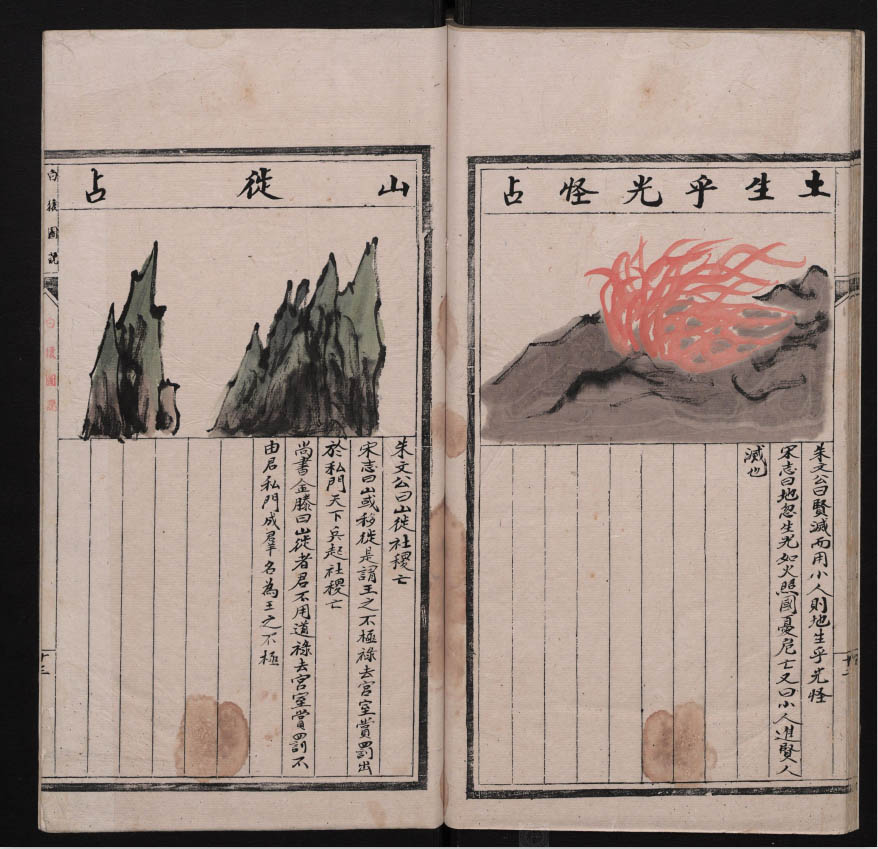 土生乎光怪占
朱文公曰賢滅而用小人則地生乎光怪
宋志曰地忽生光如火照國憂危亡又曰小人進賢人
滅也
山徙占
朱文公曰山徙社稷亡
宋志曰山或移徙是謂王之不極祿去宮室賞罰出
於私門天下兵起社稷亡
尚書金滕曰山徙者君不用道祿去宮室賞罰不
由君私門成羣名為王之不極
白猿圖說
白猿圖說
十三